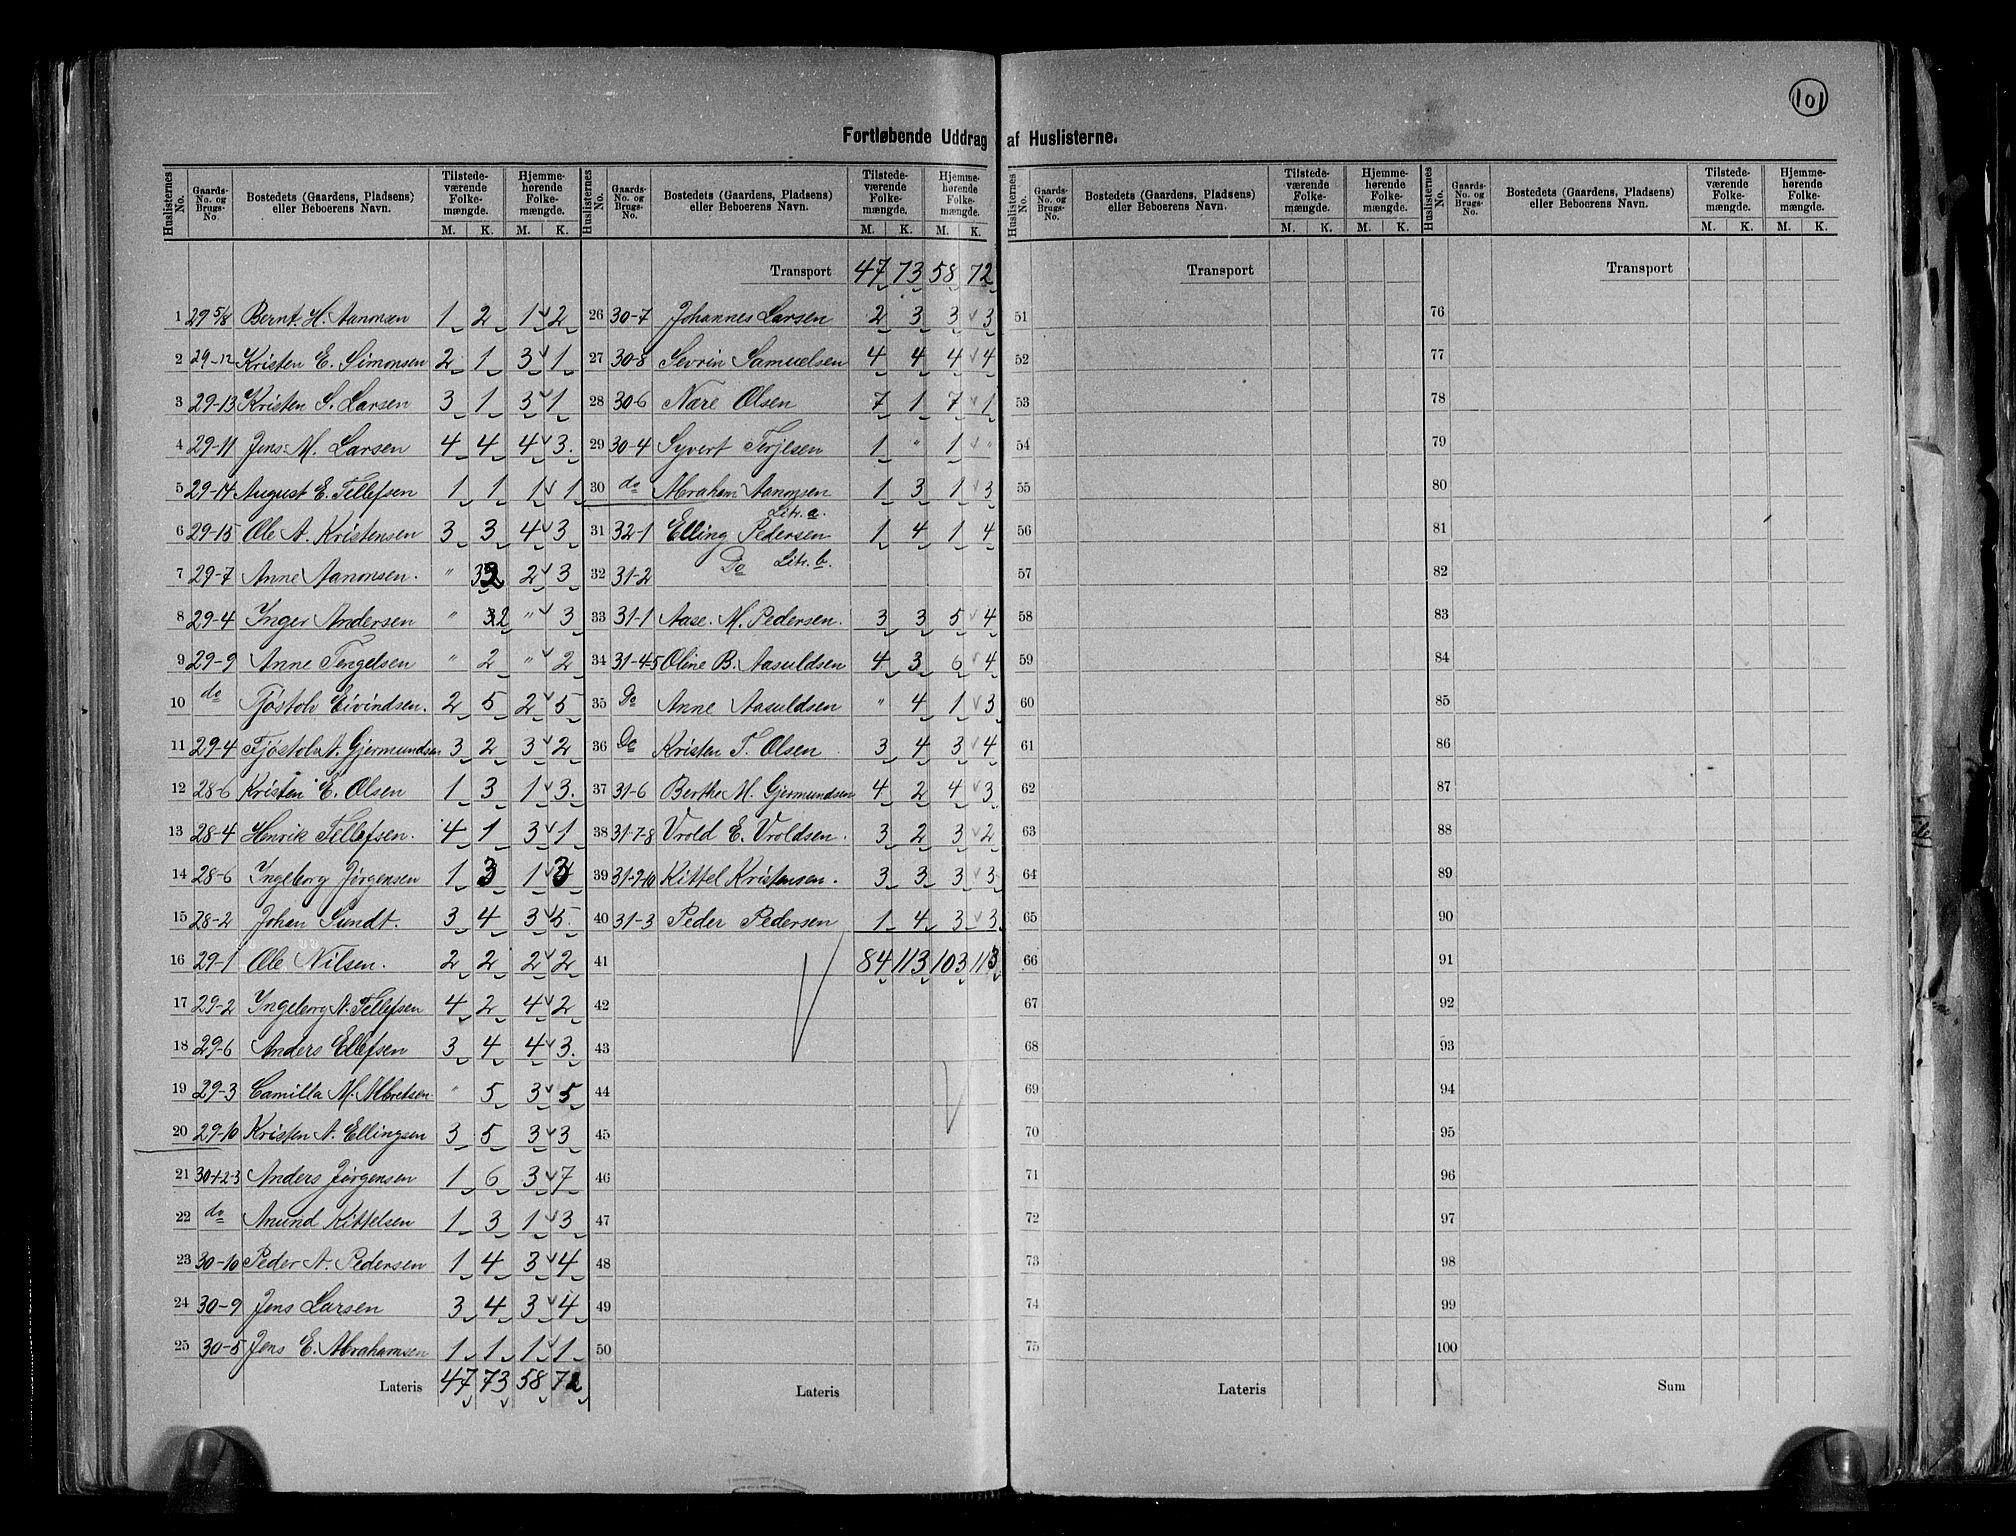 101
Fortløbende Uddrag af Huslisterne.
Huslisternes No. Gaards-No. og Brugs-No. Bostedets (Gaardens, Pladsens) eller Beboerens Navn. Tilstedeværende Folkemængde. M. K. Hjemmehørende Folkemængde. M. K.
1 29 5/8 Bernt H. Aanonsen 1 2 1 2
2 29-12 Kristen E. Simonsen 2 1 3 1
3 29-13 Kristen S. Larsen 3 1 3 1
4 29-11 Jens M. Larsen 4 4 4 3.
5 29-14 August E. Tellefsen 1 1 1 1
6 29-15 Ole A. Kristensen 3 3 4 3
7 29-7 Anne Aanonsen. " 2 2 3
8 29-4 Inger Andersen " 2 " 3
9 29-9 Anne Tengelsen " 2 " 2
10 do Tjøstolv Eivindsen. 2 5 2 5
11 29-4 Tjøstol A. Gjermundsen 3 2 3 2
12 28-6 Kristen E. Olsen 1 3 1 3.
13 28-4 Henrik Tellefsen. 4 1 3 1
14 28-6 Ingeborg Jørgensen 1 3 1 3
15 28-2 Johan Sundt. 3 4 3 5.
16 29-1 Ole Nilsen. 2 2 2 2
17 29-2 Ingeborg N. Tellefsen 4 2 4 2
18 29-6 Anders Ellefsen 3 4 4 3.
19 29-3 Camilla M. Albretsen. " 5 3 5
20 29-10 Kristen A. Ellingsen 3 5 3 3
21 30-1-2-3 Anders Jørgensen 1 6 3 7
22 do Anund Kittelsen 1 3 1 3
23 30-10 Peder A. Pedersen 1 4 3 4
24 30-9 Jens Larsen 3 4 3 4
25 30-5 Jens E. Abrahamsen 1 1 1 1
Lateris 47 73 58 72
Huslisternes No. Gaards-No. og Brugs-No. Bostedets (Gaardens, Pladsens) eller Beboerens Navn. Tilstedeværende Folkemængde. M. K. Hjemmehørende Folkemængde. M. K.
Transport 47 73 58 72
26 30-7 Johannes Larsen 2 3 3 3
27 30-8 Sevrin Samuelsen 4 4 4 4
28 30-6 Nære Olsen 7 1 7 1
29 30-4 Syvert Terjesen 1 " 1 "
30 do Abraham Aanonsen 1 3 1 3
Litr. a.
31 32-1 Elling Pedersen 1 4 1 4
32 31-2 Do Litr. b.
33 31-1 Aase. M. Pedersen. 3 3 5 4
34 31-4-5 Oline B. Aasuldsen 4 3 6 4
35 Do Anne Aasuldsen " 4 1 3
36 Do Kristen T. Olsen 3 4 3 4
37 31-6 Berthe M. Gjermundsen 4 2 4 3
38 31-7-8 Vrold E. Vroldsen. 3 2 3 2
39 31-9-10 Kittel Kristensen. 3 3 3 3
40 31-3 Peder Pedersen 1 4 3 3
41 84 113 103 113
42
43
44
45
46
47
48
49
50
Lateris
Huslisternes No. Gaards-No. og Brugs-No. Bostedets (Gaardens, Pladsens) eller Beboerens Navn. Tilstedeværende Folkemængde. M. K. Hjemmehørende Folkemængde. M. K.
Transport
51
52
53
54
55
56
57
58
59
60
61
62
63
64
65
66
67
68
69
70
71
72
73
74
75
Lateris
Huslisternes No. Gaards-No. og Brugs-No. Bostedets (Gaardens, Pladsens) eller Beboerens Navn. Tilstedeværende Folkemængde. M. K. Hjemmehørende Folkemængde. M. K.
Transport
76
77
78
79
80
81
82
83
84
85
86
87
88
89
90
91
92
93
94
95
96
97
98
99
100
Sum